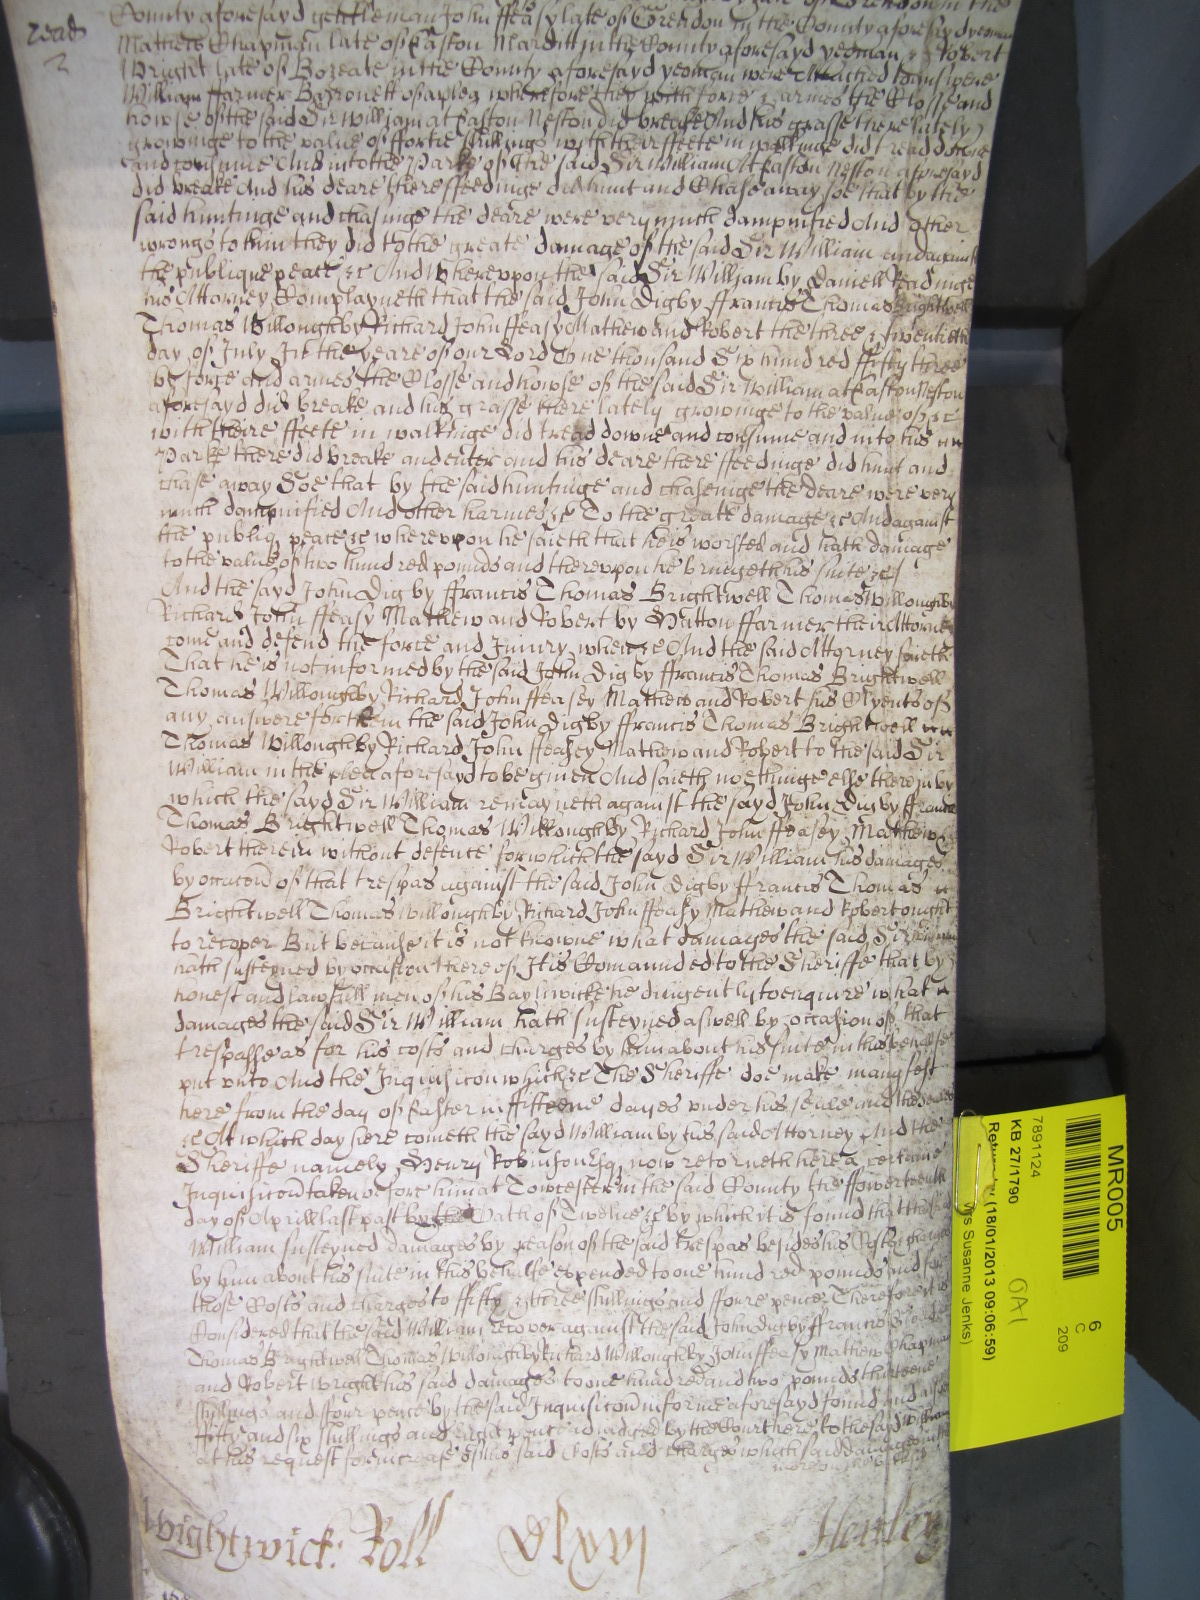 County aforesayd gentleman John ffeasy late of Corendon in the County aforesayd yeoman
Mathew Chapman late of Easton Marditt in the County aforesayd yeoman & Robert
Wright late of Bozeate in the County aforesayd yeoman were Attached to answere
William ffarmer Barronett of a plea wherefore they with force & armes the Closse and
howse of the said Sir William at Easton Neston did breake And his grasse there lately
growinge to the value of fortie shillings with their ffeete in walkinge did tread downe
and consume And into the Parke of the said Sir William At Easton Neston aforesayd
did breake And his deare there ffeedinge did hunt and Chase away soe that by the
said huntinge and chasinge the deare were very much dampnified And other
wrongs to him they did to the greate damage of the said Sir William and against
the publique peace &c And Whereupon the said Sir William by Daniell Readinge
his Attorney Complayneth that the said John Digby ffrancis Thomas Brightwell
Thomas Willoughby Richard John ffeasy Mathew and Robert the three & twentieth
day of July In the yeare of our Lord One thousand Six hundred ffifty three
by force and armes the Closse and howse of the said Sir William at Easton Neston
aforesayd did breake and his grasse there lately growinge to the value of &c
with theire ffeete in walkinge did tread downe and consume and into his
Parke there did breake and enter and his deare there ffeedinge did hunt and
chase away Soe that by the said huntinge and chaseinge the deare were very
much dampnified And other harmes &c To the greate damage &c And against
the publiq peace &c whereupon he saieth that he is worsted and hath damage
to the value of two hundred pounds and thereupon he bringeth his suite &c
And the sayd John Digby ffrancis Thomas Brightwell Thomas Willoughby
Richard John ffeasy Mathew and Robert by Hatton ffarmer their Attorney
come and defend the force and Iniury when &c And the said Attorney saieth
That he is not informed by the said John Digby ffrancis Thomas Brightwell
Thomas Willoughby Richard John ffeasey Mathew and Robert his Clyents of
any answere for them the said John Digby ffrancis Thomas Brightwell
Thomas Willoughby Richard John ffeasey Mathew and Robert to the said Sir
William in the plea aforesayd to be given And saieth noethinge else therein by
which the sayd Sir William remayneth against the sayd John Digby ffrancis
Thomas Brightwell Thomas Willoughby Richard John ffeasey Mathew &
Robert therein without defence for which the sayd Sir William his damages
by occacon of that trespas against the said John Digby ffrancis Thomas
Brightwell Thomas Willoughby Richard John ffeasy Mathew and Robert ought
to recover But because it is not knowne what damages the said Sir William
hath susteyned by occasion thereof It is Comaunded to the Sheriffe that by
honest and lawfull men of his Bayliwicke he diligently to enquire what
damages the said Sir William hath susteyned aswell by occasion of that
trespasse as for his costs and charges by him about his suite in this behalfe
put unto And the Inquisicon which &c The Sheriffe doe make manyfest
here from the day of Easter in ffifteene dayes under his seale and the seales
&c At which day here cometh the sayd William by his said Attorney And the
Sheriffe namely Henry Robinson Esq now retorneth here a certaine
Inquisicon taken before him at Towcester in the said County the ffowerteenth
day of Aprill last past by the Oath of Twelve &c by which it is found that the said
William susteyned damages by reason of the said trespas besides his Costs and charges
by him about his suite in this behalfe expended to one hundred pounds and for
those Costs and charges to ffifty & three shillings and ffoure pence Therefore it is
Considered that the said William recover against the said John Digby ffrancis
Thomas Brightwell Thomas Willoughby Richard Willoughby John ffeasy Mathew Chapman
and Robert Wright his said damages to one hundred and two pounds thirteene
shillings and ffour pence by the said Inquisicon in forme aforesayd found and alsoe
ffifty and six shillings and eight pence adiudged by the Court here to the sayd William
at his request for increase of his said Costs and Charges which said damages in the
Wightwick: Roll Dlxvi Henley
MR005
6
C
209
7891124
KB 27/1790
(18/01/2013 09:06:59)
Ms Susanne Jenks)